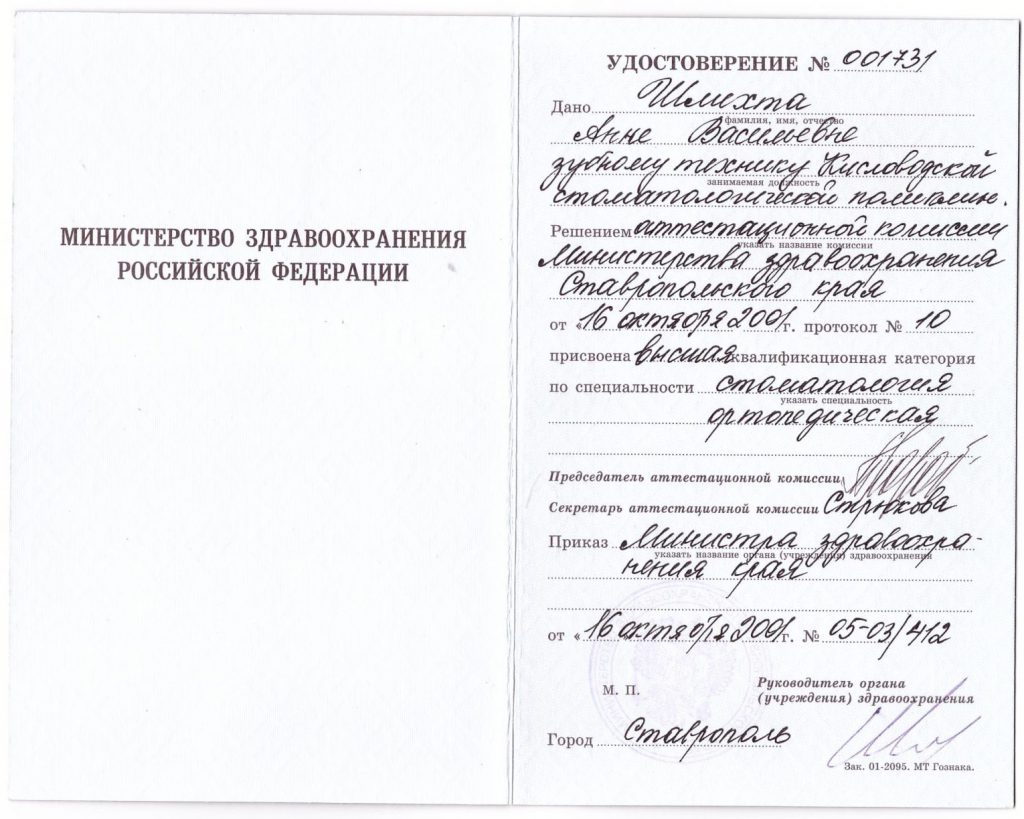 МИНИСТЕРСТВО ЗДРАВООХРАНЕНИЯ
РОССИЙСКОЙ ФЕДЕРАЦИИ
УДОСТОВЕРЕНИЕ № 001731
Дано Шлихта
фамилия, имя, отчество
Анне Васильевне
зубному технику Кисловодской
занимаемая должность
стоматологической поликлин.
Решением аттестационной комиссии
указать название комиссии
Министерства здравоохранения
Ставропольского края
от «16 октября 2001г. протокол № 10
присвоена высшая квалификационная категория
по специальности стоматология
указать специальность
ортопедическая
Председатель аттестационной комиссии
Секретарь аттестационной комиссии Стрюкова
Приказ Министра здравоохра-
указать название органа (учреждения) здравоохранения
нения края
от «16 октября 2001г. № 05-03/412
М. П.
Руководитель органа
(учреждения) здравоохранения
Город Ставрополь
Зак. 01-2095. МТ Гознака.